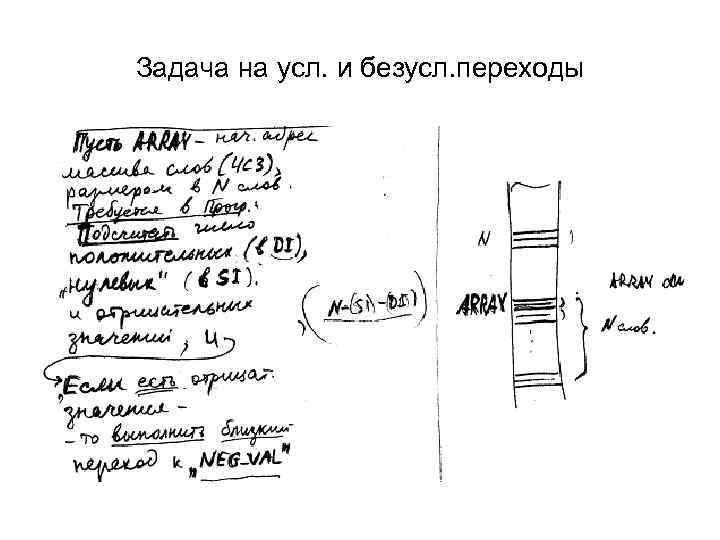 Задача на усл. и безусл.переходы
Пусть ARRAY – нач. адрес
массива слов (ЧСЗ),
размером в N слов.
Требуется в прогр.:
Подсчитать число
положительных (в DI),
„нулевых" (в SI).
и отрицательных
значений, и
Если есть отрицат.
значения –
– то выполнить близкий
переход к „NEG_VAL"
N-(SI)-(DI)
N
ARRAY
ARRAY
N слов.